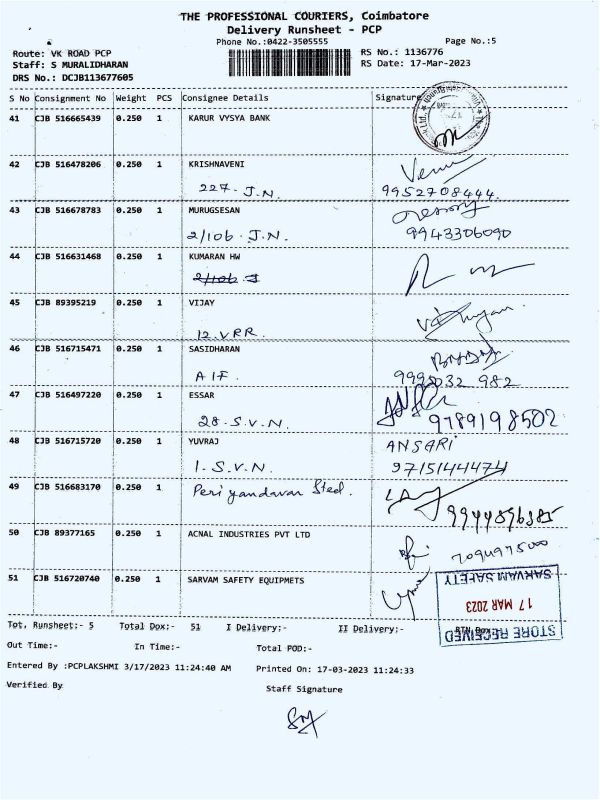 THE PROFESSIONAL COURIERS, Coimbatore
Delivery Runsheet - PCP
Phone No.:0422-3505555 Page No.:5
Route: VK ROAD PCP RS No.: 1136776
Staff: S MURALIDHARAN RS Date: 17-Mar-2023
DRS No.: DCJB113677605
S No Consignment No Weight PCS Consignee Details Signature
41 CJB 516665439 0.250 1 KARUR VYSYA BANK
42 CJB 516478206 0.250 1 KRISHNAVENI
227. J.N. 9952708444
43 CJB 516678783 0.250 1 MURUGSESAN
2/106. J.N. 9943306090
44 CJB 516631468 0.250 1 KUMARAN HW
2/106 J
45 CJB 89395219 0.250 1 VIJAY
12.VRR.
46 CJB 516715471 0.250 1 SASIDHARAN
AIF. 982
47 CJB 516497220 0.250 1 ESSAR
28. S.V.N. 9789198502
48 CJB 516715720 0.250 1 YUVRAJ ANSARI
1. S.V.N. 9715144474
49 CJB 516683170 0.250 1 Periyandavar Steel.
50 CJB 89377165 0.250 1 ACNAL INDUSTRIES PVT LTD
51 CJB 516720740 0.250 1 SARVAM SAFETY EQUIPMETS
SARVAM SAFETY
17 MAR 2023
STORE RECEIVED
Tot. Runsheet:- 5 Total Dox:- 51 I Delivery:- II Delivery:-
Out Time:- In Time:- Total POD:-
Entered By :PCPLAKSHMI 3/17/2023 11:24:40 AM Printed On: 17-03-2023 11:24:33
Verified By Staff Signature